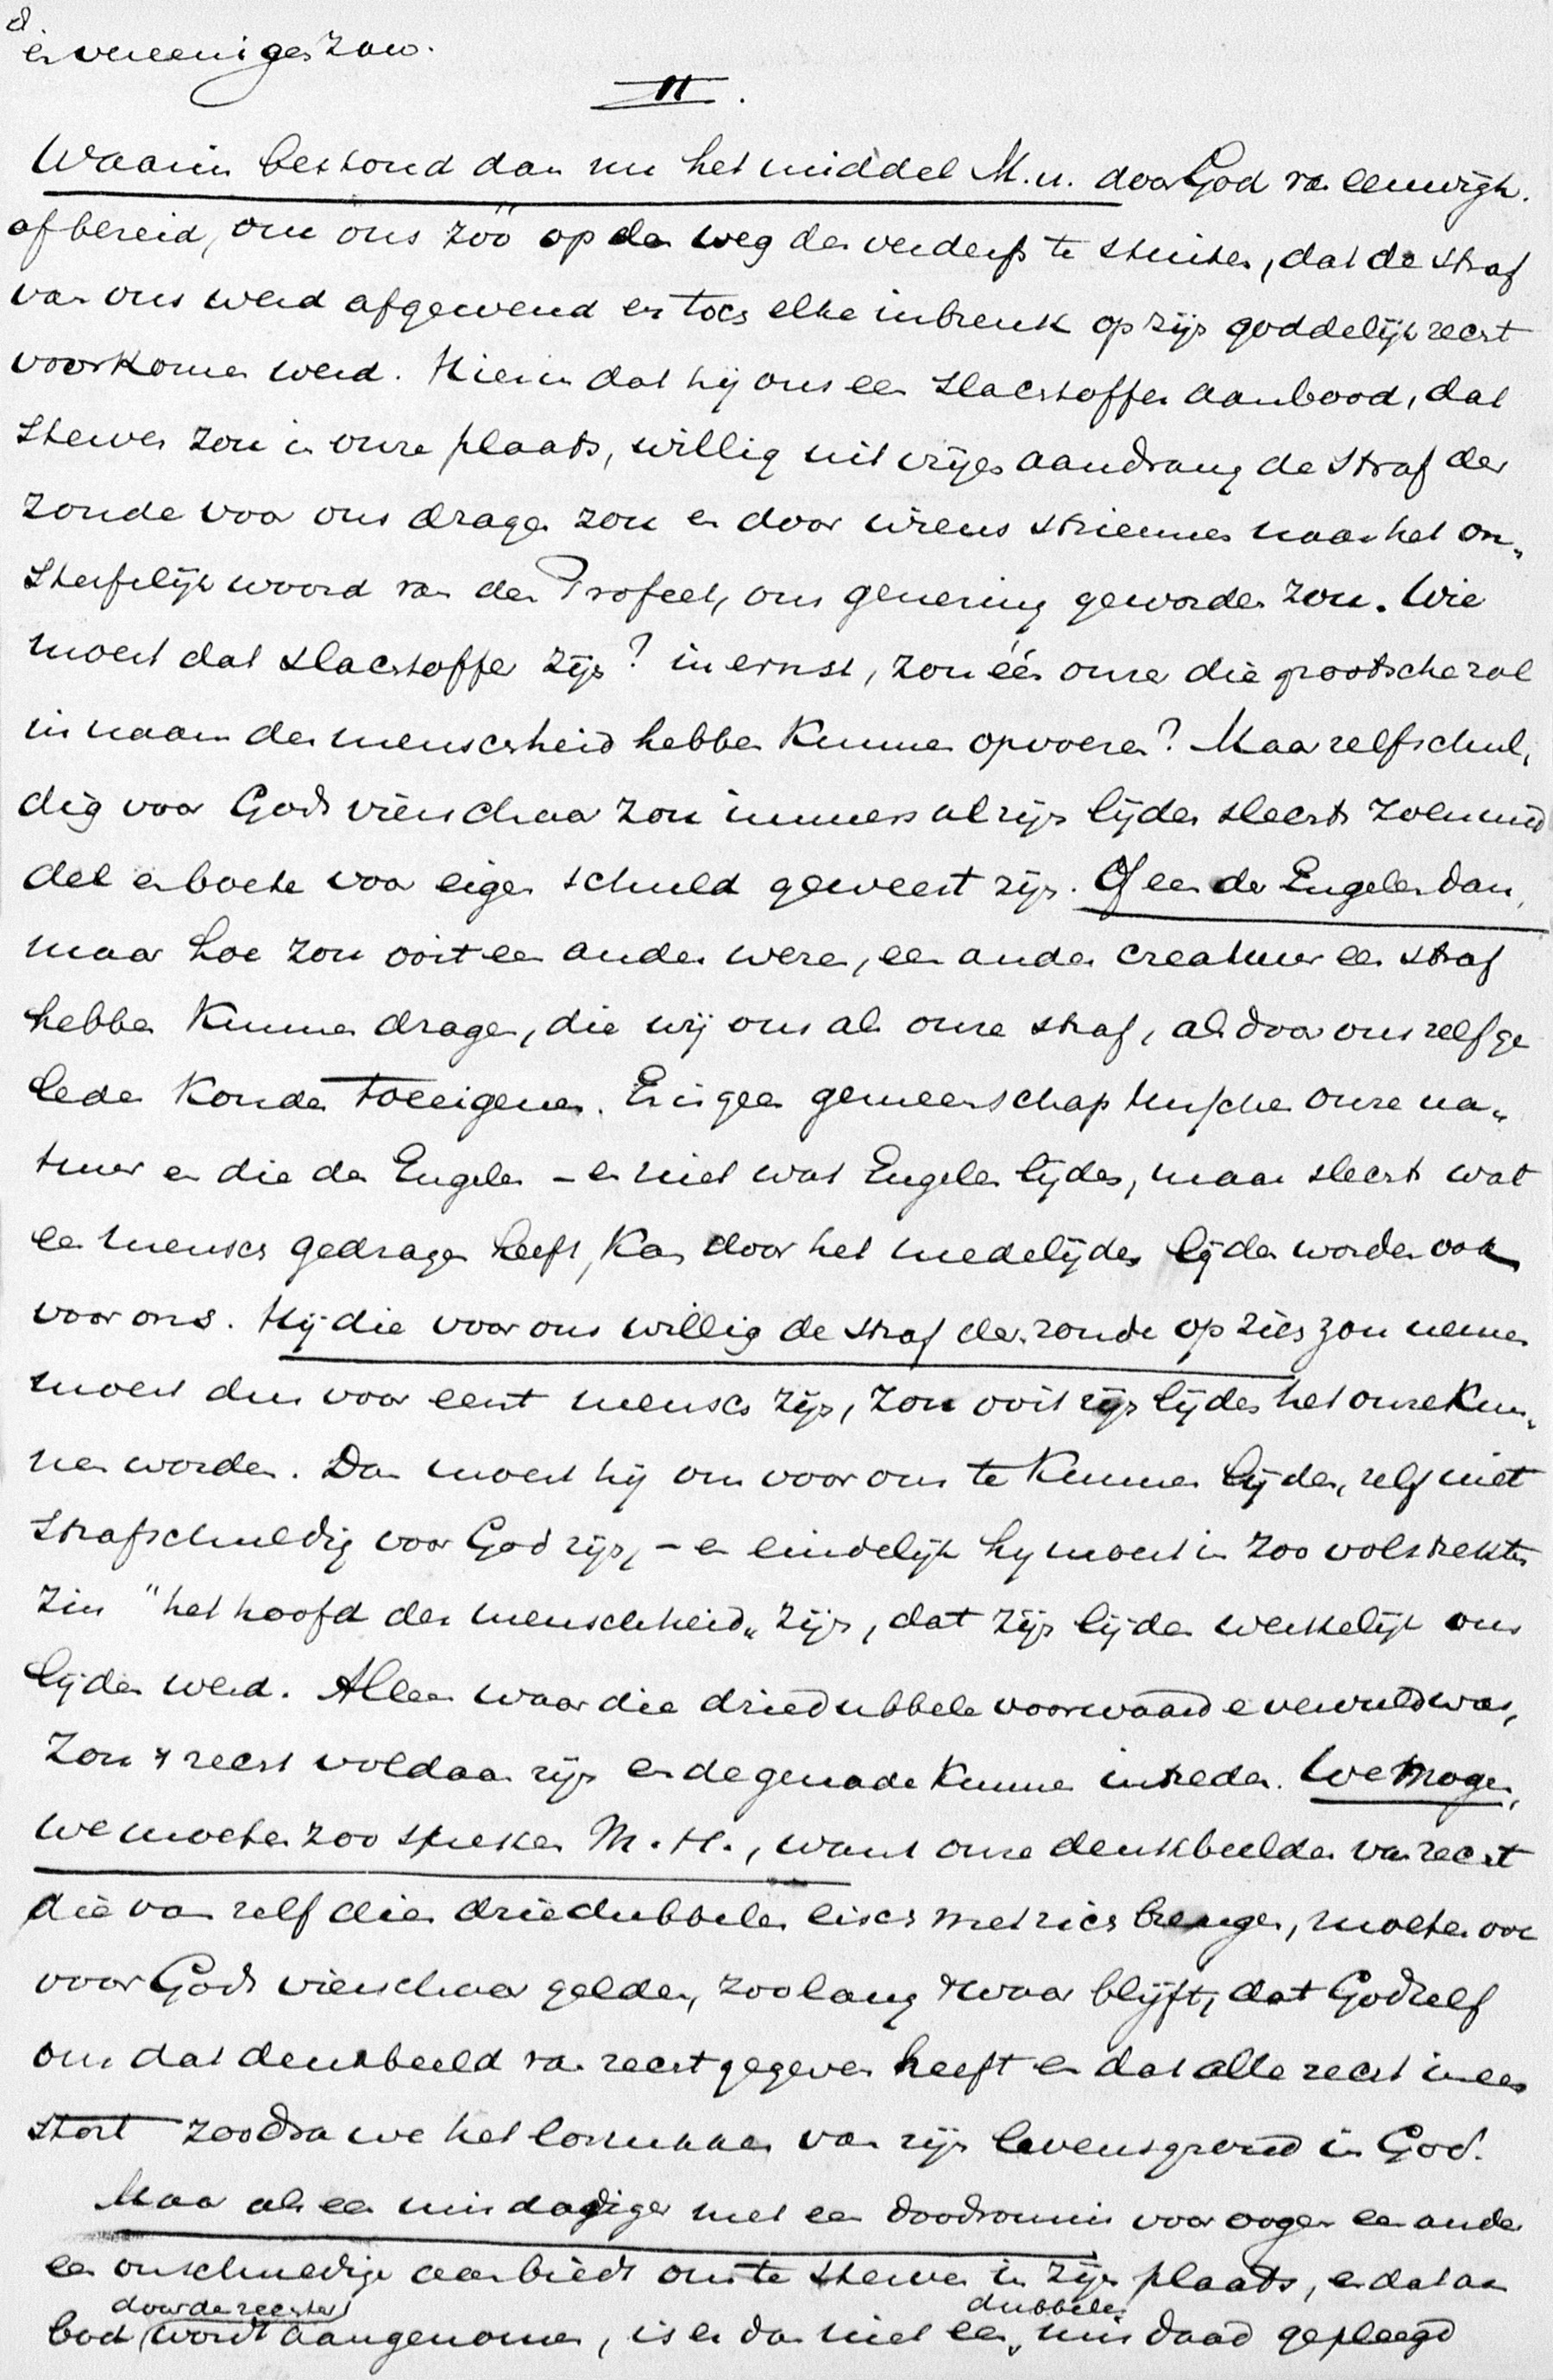 er vereenigen zou.
II.
Waarin bestond dan nu het middel M.H. door God van eeuwigh.
af bereid, om ons zóó op den weg des verderfs te stuiten, dat de straf
van ons werd afgewend en toch elke inbreuk op zijn goddelijk recht
voorkomen werd. Hierin dat hij ons een slachtoffer aanbood, dat
sterven zou in onze plaats, willig uit vrijen aandrang de straf der
zonde voor ons dragen zou en door wiens striemen naar het on„
sterfelijk woord van den Profeet, ons genezing geworden zou. Wie
moest dat slachtoffer zijn? in ernst, zou één onzer die grootsche rol
in naam der menschheid hebben kunnen opvoeren? Maar zelf schul„
dig voor Gods vierschaar zou immers al zijn lijden slechts zoenmid
del en boete voor eigen schuld geweest zijn. Of een der Engelen dan,
maar hoe zou ooit een ander wezen, een ander creatuur een straf
hebben kunnen dragen, die wij ons als onze straf, als door ons zelf ge
leden konden toeeigenen. Er is geen gemeenschap tusschen onze na„
tuur en die der Engelen – en niet wat Engelen lijden, maar slechts wat
een mensch gedragen heeft, kan door het medelijden lijden worden ook
voor ons. Hij die voor ons willig de straf der zonde op zich zou nemen
moest dus voor eerst mensch zijn, zou ooit zijn lijden het onze kun„
nen worden. Dan moest hij om voor ons te kunnen lijden, zelf niet
strafschuldig voor God zijn, – en eindelijk hij moest in zoo volstrekten
zin "het hoofd der menschheid„ zijn, dat zijn lijden werkelijk ons
lijden werd. Alleen waar die driedubbele voorwaarde vervuld was,
zou 't recht voldaan zijn en de genade kunnen intreden. We mogen,
we moeten zoo spreken M.H., want onze denkbeelden van recht
die van zelf dien driedubbelen eisch met zich brengen, moeten ook
voor Gods vierschaar gelden, zoolang 't waar blijft, dat God zelf
ons dat denkbeeld van recht gegeven heeft en dat alle recht ineen
stort zoodra we het losmaken van zijn levensgrond in God.
Maar als een misdadiger met een doodvonnis voor oogen een ander
een onschuldige aanbiedt om te sterven in zijn plaats, en dat aan
bod door de rechter wordt aangenomen, is er dan niet een dubbele misdaad gepleegd